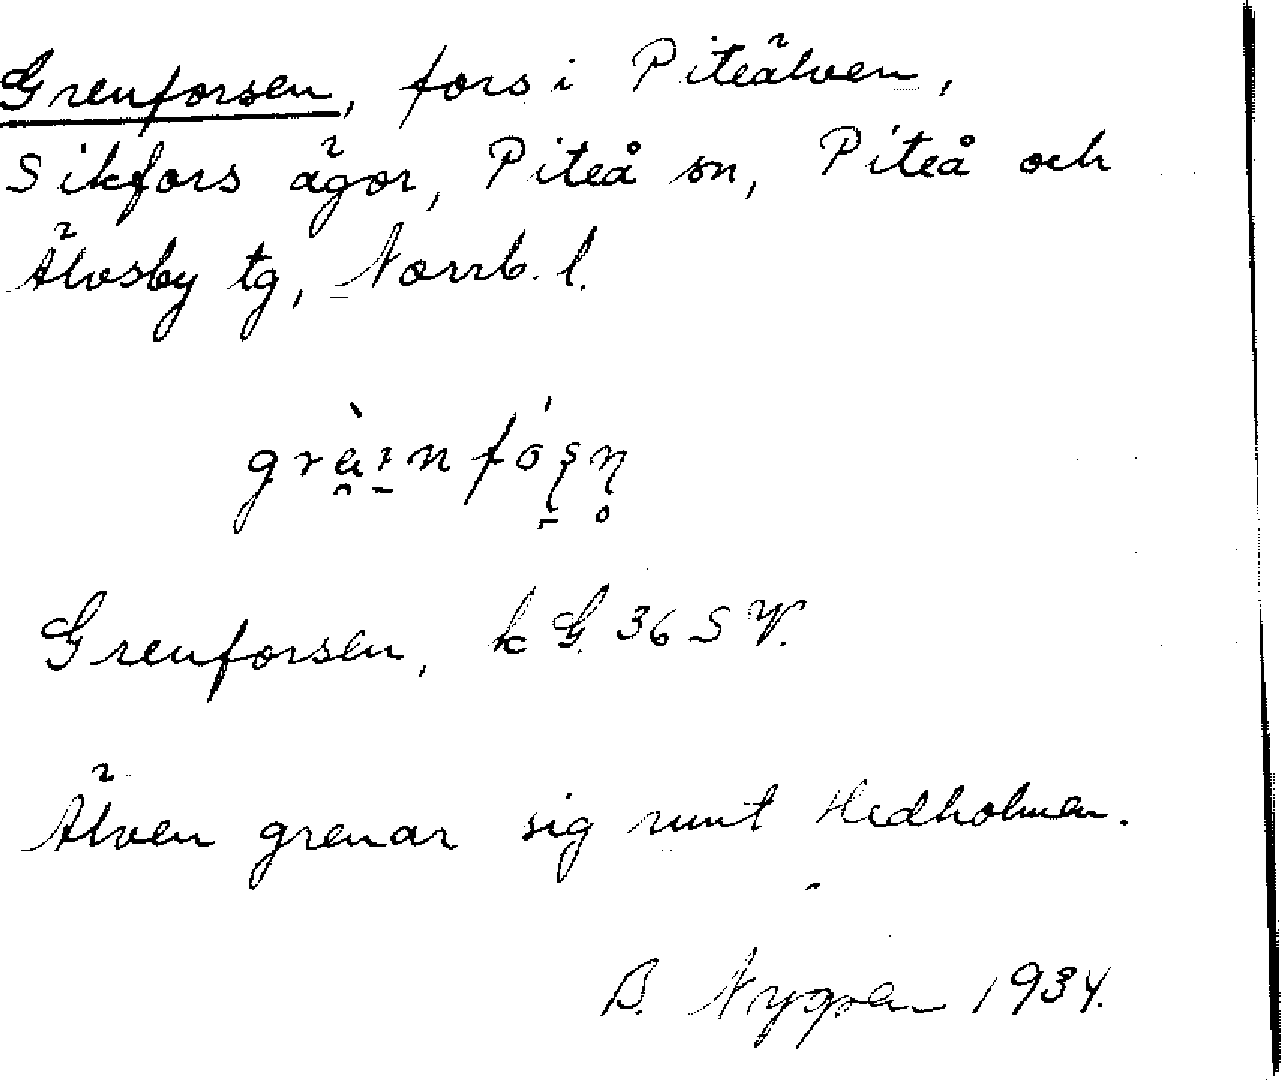 Grenforsen, fors i Piteälven,
Sikfors ägor, Piteå sn, Piteå och
Älvsby tg, Norrb. l.
gràınfóşn̥
Grenforsen, k G. 36 S V.
Älven grenar sig runt Hedholmen.
B. Nygren 1934.